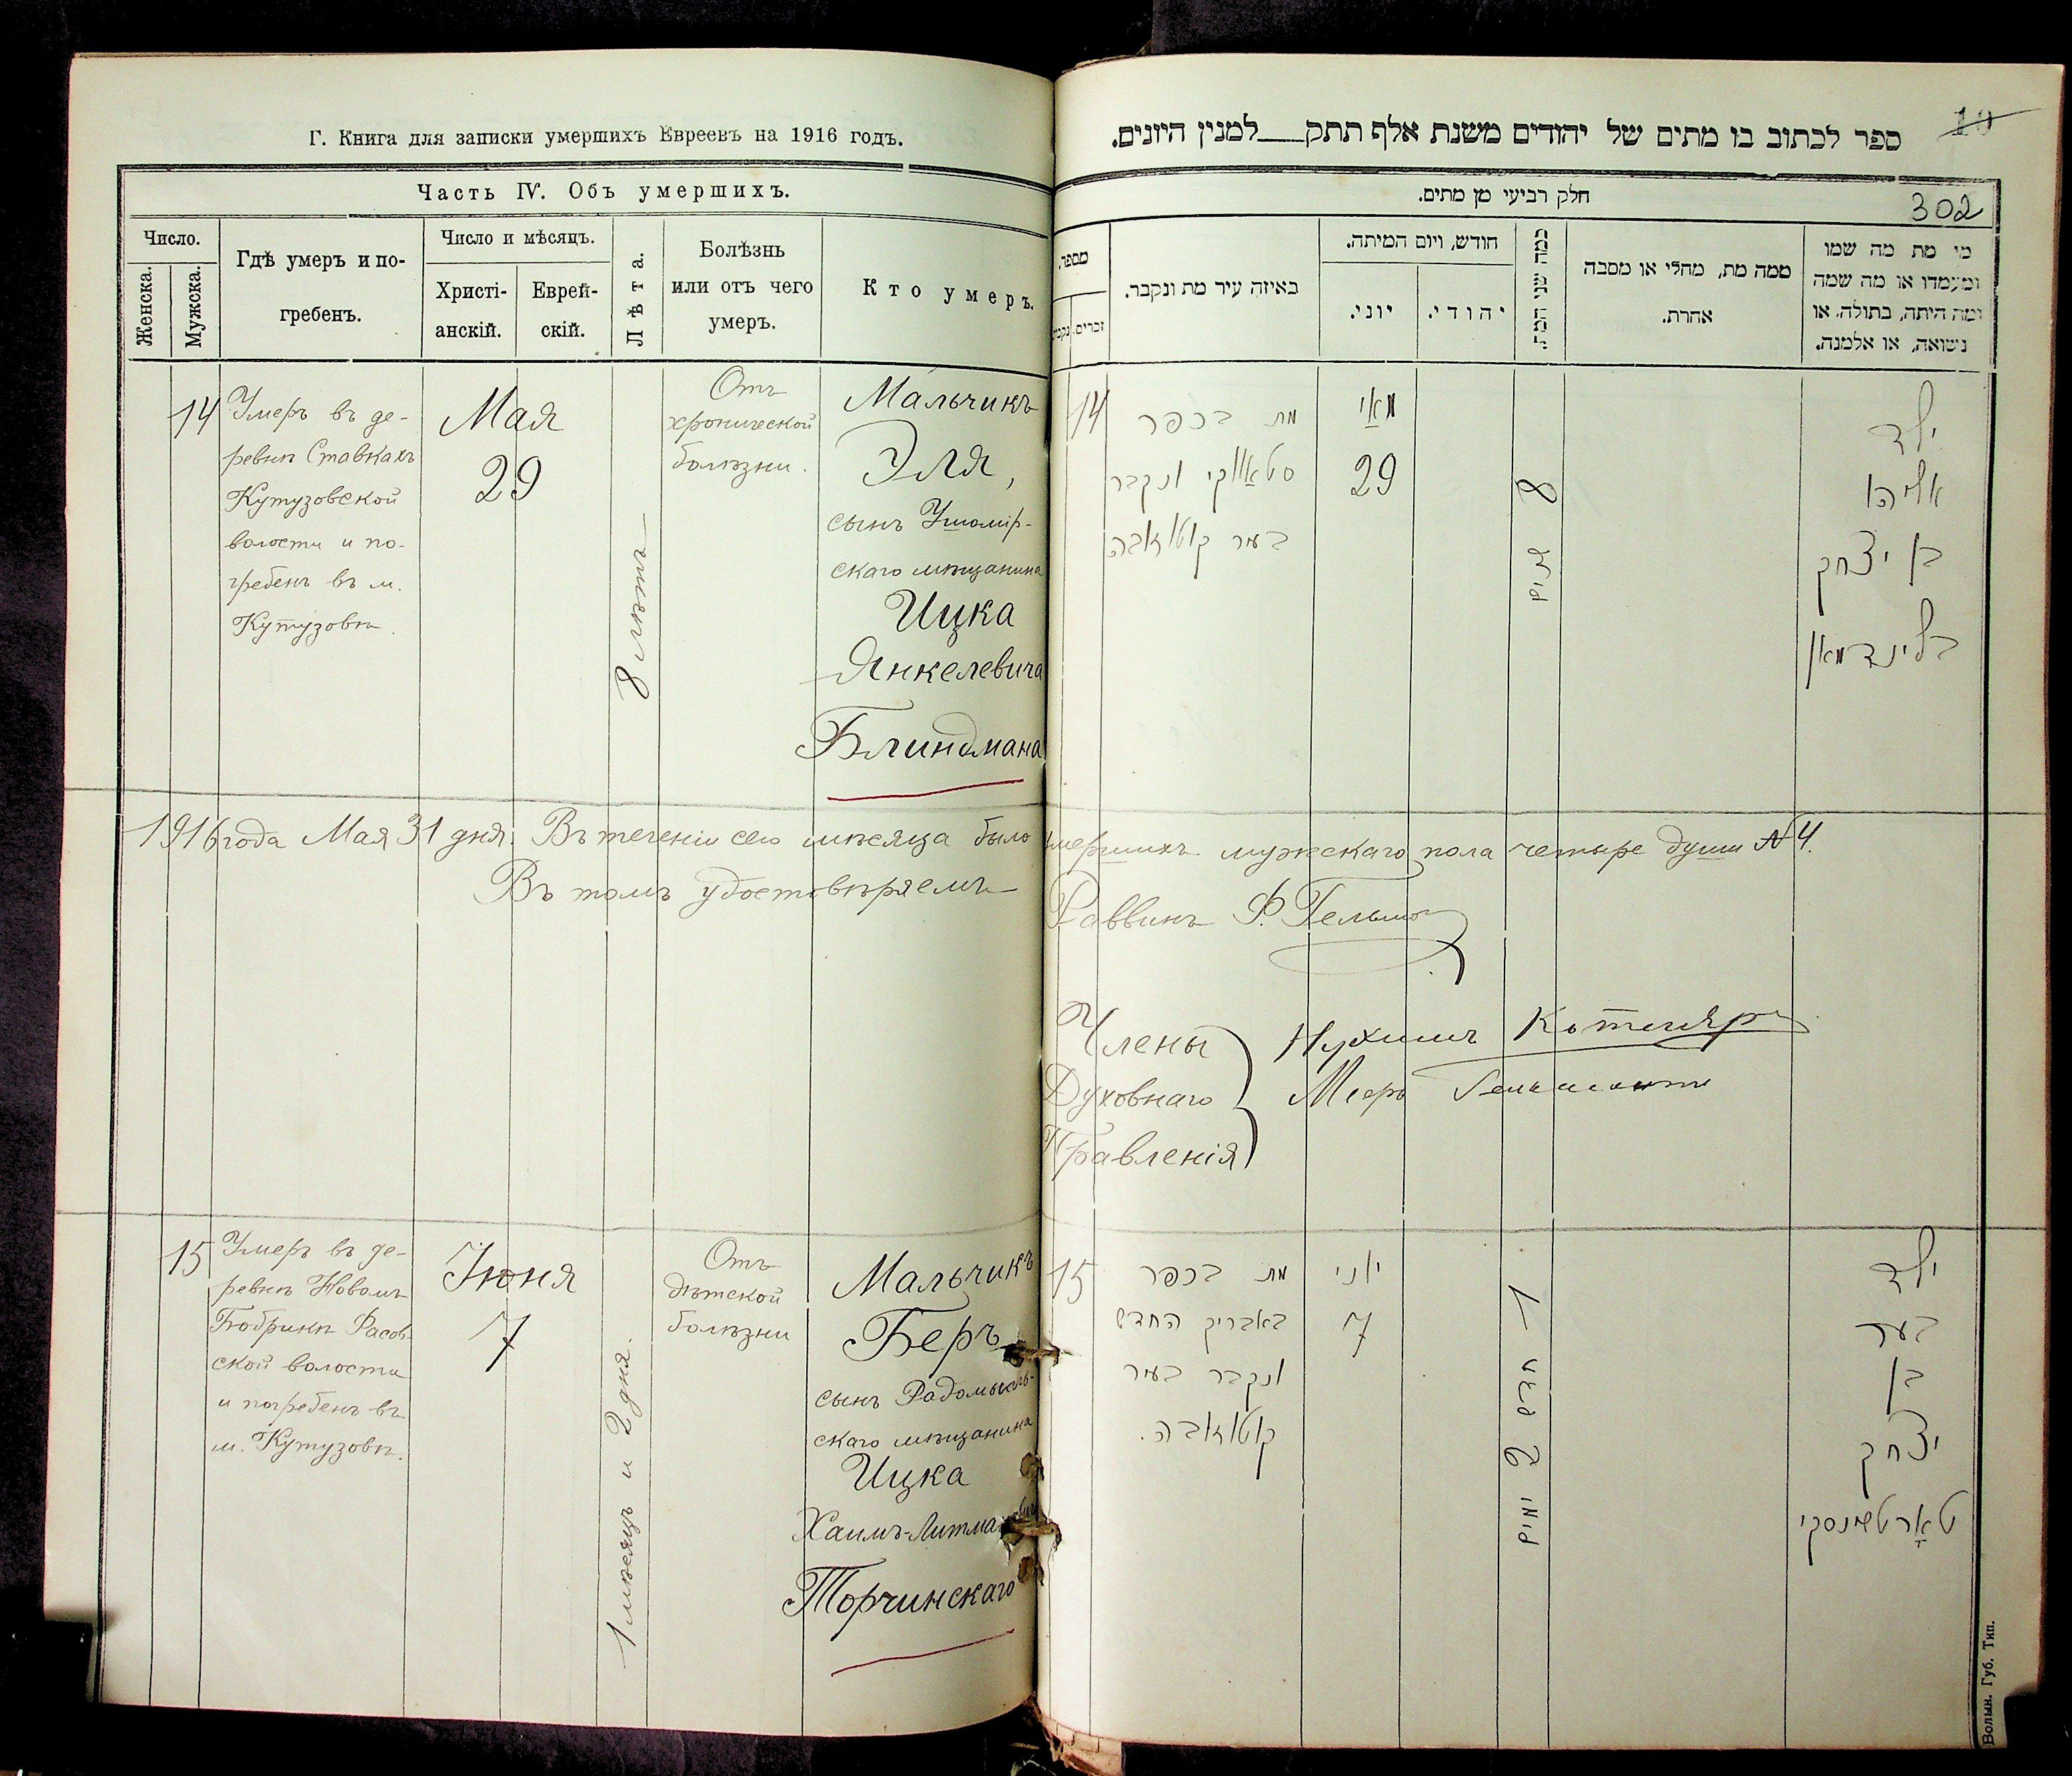 Г. Книга для записки умершихъ Евреевъ на 1916 годъ.
Часть IV. Объ умершихъ.
Число.
Женска.
Мужска.
Гдѣ умеръ и по-
гребенъ.
Число и мѣсяцъ.
Христі-
анскій.
Еврей-
скій.
Лѣта.
Болѣзнь
или отъ чего
умеръ.
Кто умеръ.
14
Умеръ въ де-
ревнѣ Ставкахъ
Кутузовской
волости и по-
гребенъ въ м.
Кутузовѣ.
Мая
29
8 лѣтъ
Отъ
хронической
болѣзни.
Мальчикъ
Эля,
сынъ Ушомір-
скаго мѣщанина
Ицка
Янкелевича
Блиндмана
1916 года Мая 31 дня. Въ теченіи сего мѣсяца было умершихъ мужскаго пола четыре души № 4.
Въ томъ удостовѣряемъ
Раввинъ Ф.
Члены
Духовнаго
Правленія
Нухимъ Котляръ
Мееръ
15
Умеръ въ де-
ревнѣ Новомъ
Бобрикѣ Фасов-
ской волости
и погребенъ въ
м. Кутузовѣ.
Іюня
7
1 мѣсяцъ и 2 дня.
Отъ
дѣтской
болѣзни
Мальчикъ
Беръ
сынъ Радомысль-
скаго мѣщанина
Ицка
Торчинскаго
10
ספר לכתוב בו מתים של יהודים משנת אלף תתק___למנין היונים.
חלק רביעי מן מתים.
302
מספר.
זכרים.
נקבות
באיזה עיר מת ונקבר.
חודש, ויום המיתה.
יוני.
יהודי.
כמה שני המת.
ממה מת, מחלי או מסבה
אחרת.
מי מת מה שמו
ומעמדו או מה שמה
ומה היתה, בתולה, או
נשואה, או אלמנה.
14
מת בכפר
סטאווקי ונקבר
בעיר קוטוזובה
מאי
29
8
שנים
ילד
אליהו
בן יצחק
בלינדמאן
15
מת בכפר
באבריק החדש
ונקבר בעיר
קוטוזובה.
יוני
7
1 חדש 2 ימים
ילד
בער
בן
יצחק
טארטשינסקי
Волын. Губ. Тип.